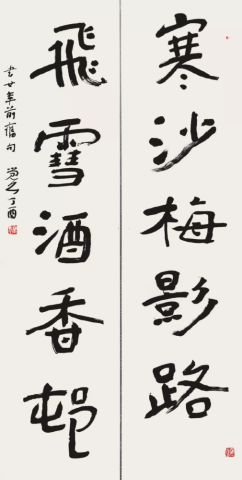 寒沙梅影路
飛雪酒香邨
書廿年前舊句
丁酉